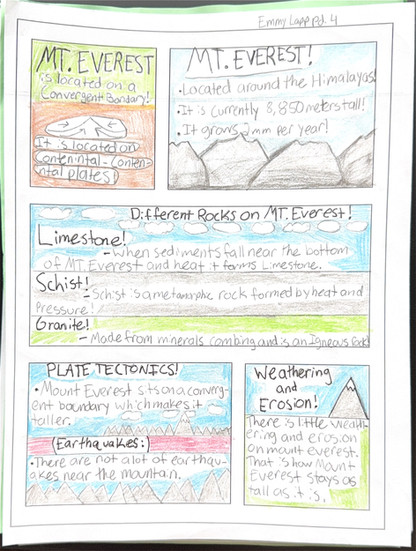 Emmy Lapp Pd. 4
MT. EVEREST
is located on a
Convergent Bondary!
It is located on
Contenintal-Conten-
tal plates!
MT. EVEREST!
•Located around the Himalayas!
•It is currently 8,850 meters tall!
•It grows 2mm per year!
Different Rocks on MT. Everest!
Limestone!
-When sediments fall near the bottom
of MT. Everest and heat it forms Limestone.
Schist!
-Schist is a metamorphic rock formed by heat and
Pressure!
Granite!
-Made from minerals combing and is an Igneous Rock!
PLATE TECTONICS!
•Mount Everest sits on a converg-
ent boundary which makes it
taller.
(Earthquakes:)
•There are not a lot of earthqu-
akes near the mountain.
Weathering
and
Erosion!
There is little weath-
ering and erosion
on mount Everest.
That is how Mount
Everest stays as
tall as it is.